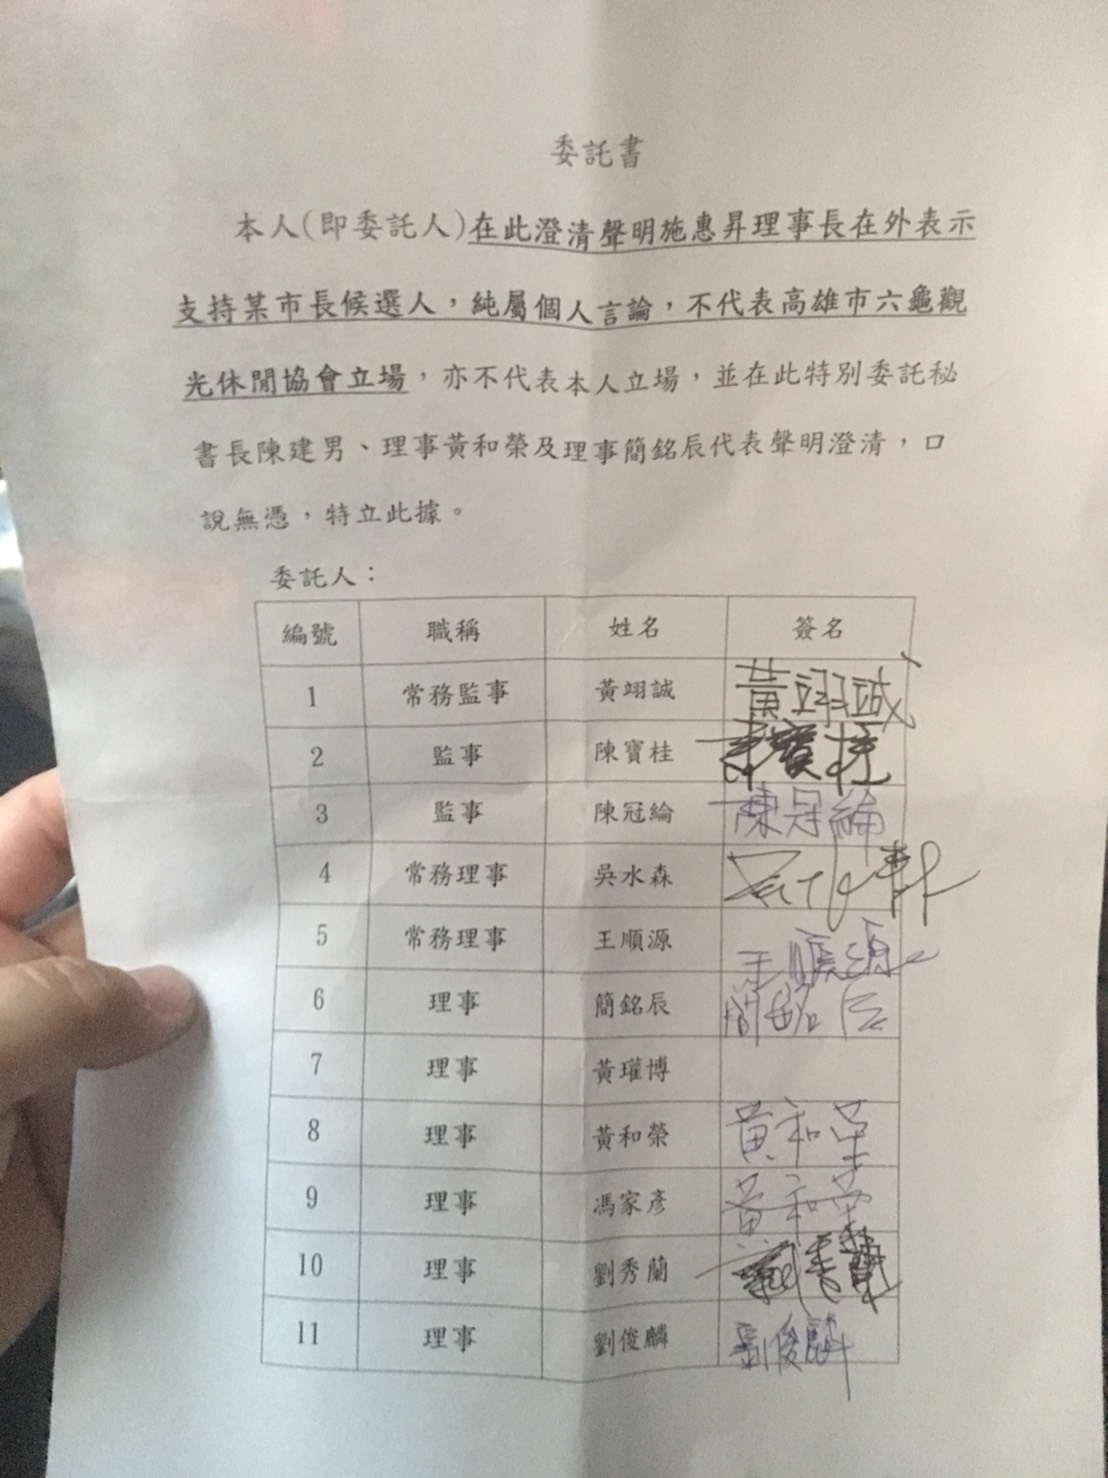 委託書
本人(即委託人)在此澄清聲明施惠昇理事長在外表示
支持某市長候選人，純屬個人言論，不代表高雄市六龜觀
光休閒協會立場，亦不代表本人立場，並在此特別委託秘
書長陳建男、理事黃和榮及理事簡銘辰代表聲明澄清，口
說無憑，特立此據。
委託人：
編號 職稱 姓名 簽名
1 常務監事 黃翊誠 黃翊誠
2 監事 陳寶桂
3 監事 陳冠綸 陳冠綸
4 常務理事 吳水森
5 常務理事 王順源 王順源
6 理事 簡銘辰 簡銘辰
7 理事 黃瓘博
8 理事 黃和榮 黃和荣
9 理事 馮家彥 黃和荣
10 理事 劉秀蘭
11 理事 劉俊麟 劉俊麟